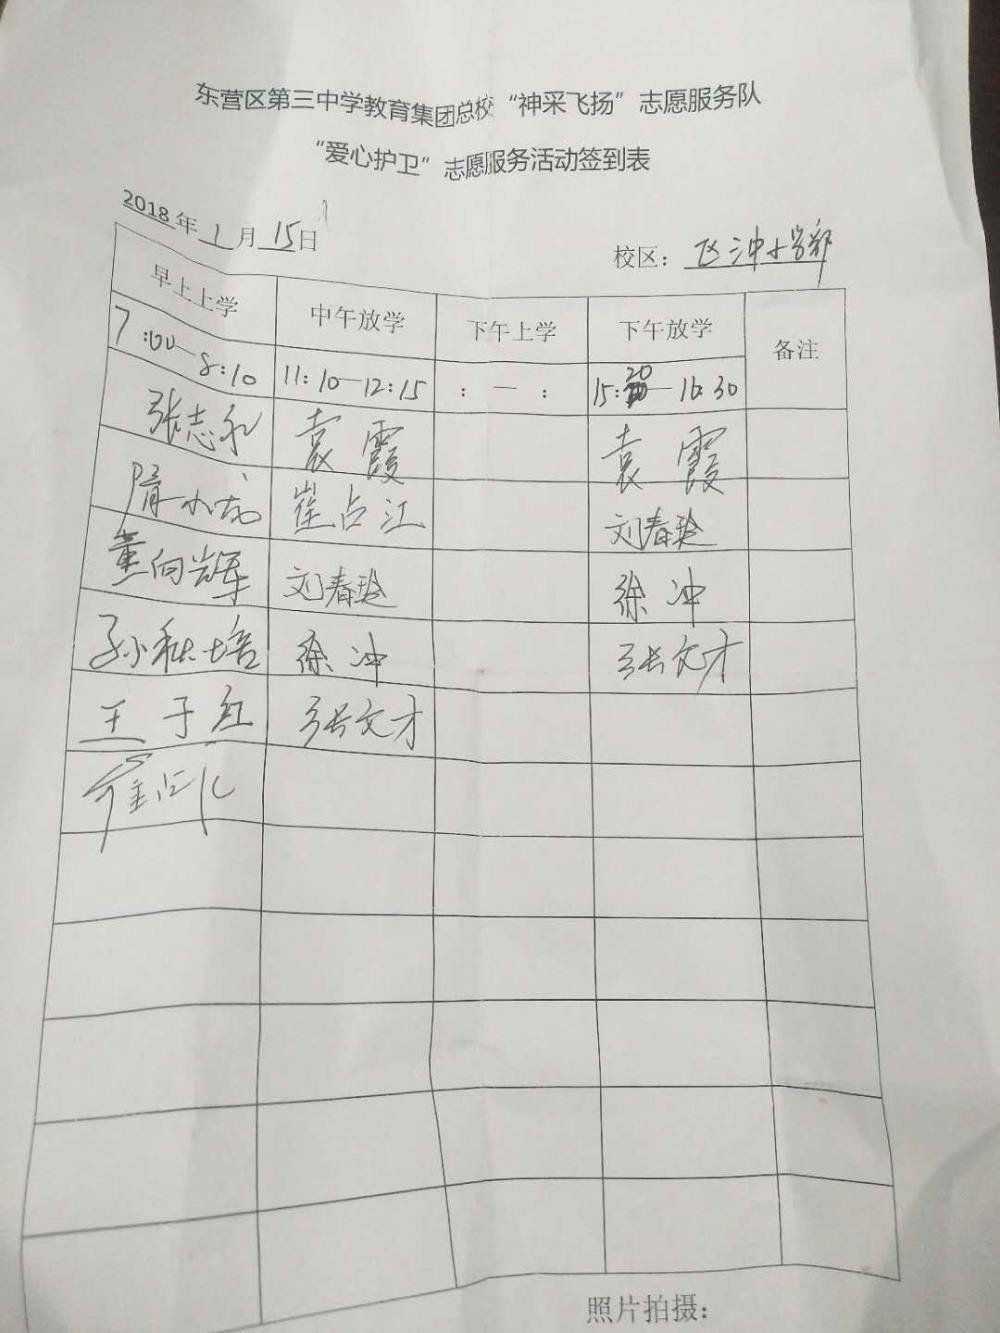 东营区第三中学教育集团总校“神采飞扬”志愿服务队
“爱心护卫”志愿服务活动签到表
2018年1月15日
校区：区三中小学部
早上上学 中午放学 下午上学 下午放学 备注
7:00—8:10 11:10—12:15 : — : 15:20—16:30
张志永 袁霞 袁霞
隋小龙 崔占江 刘春玲
董向辉 刘春玲 徐冲
孙秋培 徐冲 张文才
王于红 张文才
照片拍摄：